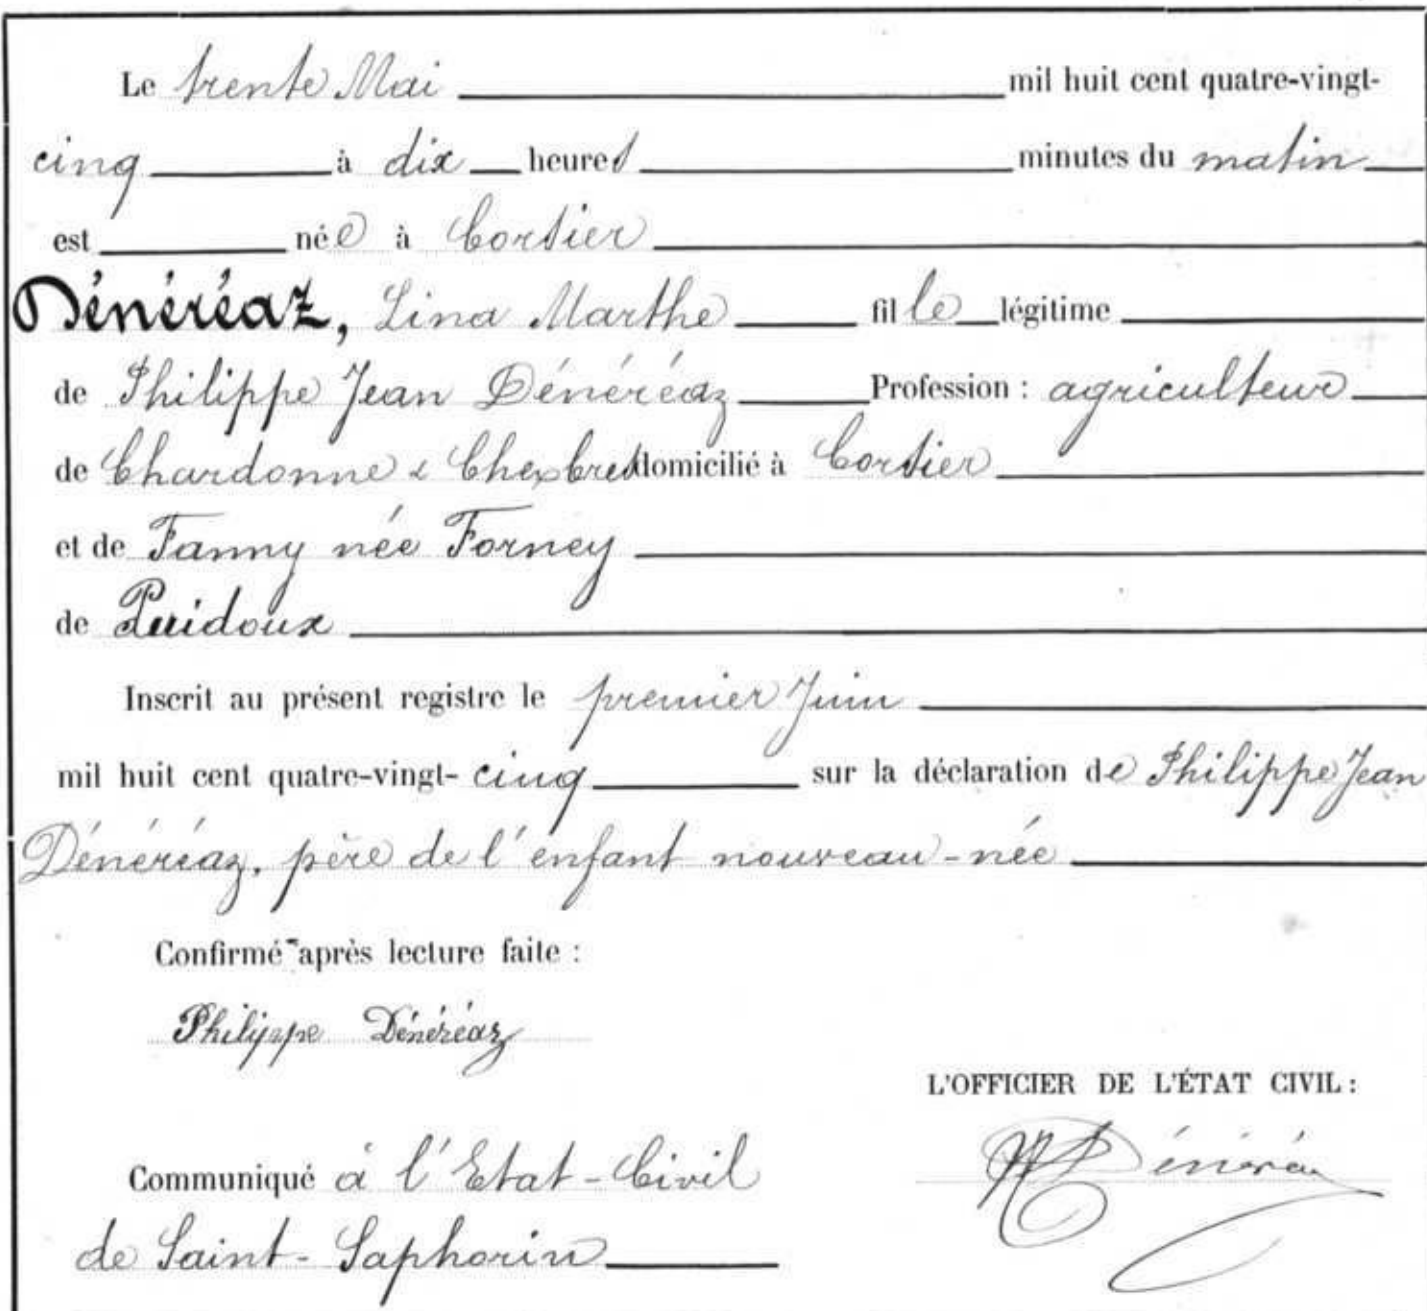 Le trente Mai mil huit cent quatre-vingt-
cinq à dix heures minutes du matin
est née à Corsier
Dénéréaz, Lina Marthe fille légitime
de Philippe Jean Dénéréaz Profession : agriculteur
de Chardonne & Chexbres domicilié à Corsier
et de Fanny née Forney
de Puidoux
Inscrit au présent registre le premier Juin
mil huit cent quatre-vingt-cinq sur la déclaration de Philippe Jean
Dénéréaz, père de l'enfant nouveau-née
Confirmé après lecture faite :
Philippe Dénéréaz
L'OFFICIER DE L'ÉTAT CIVIL :
Dénéréaz
Communiqué à l'Etat-Civil
de Saint-Saphorin